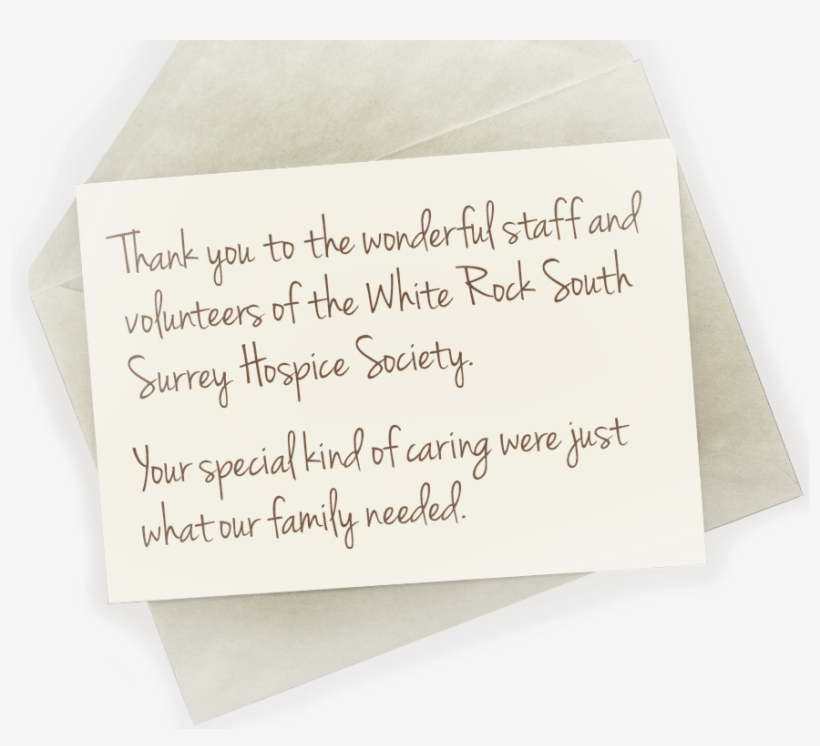 Thank you to the wonderful staff and
volunteers of the White Rock South
Surrey Hospice Society.
Your special kind of caring were just
what our family needed.